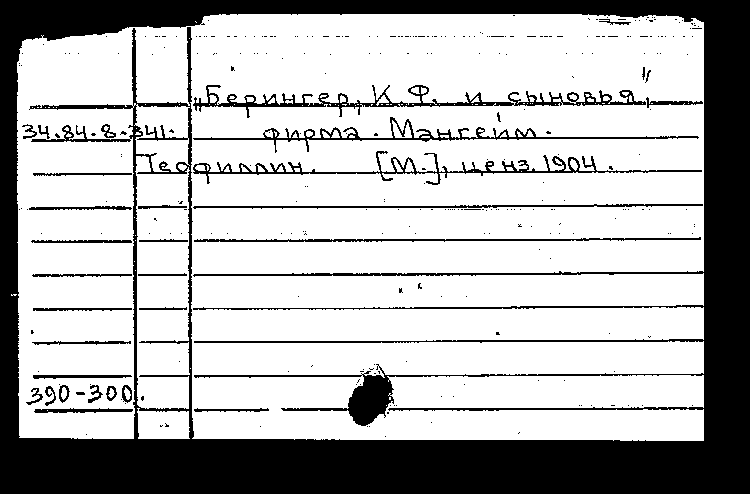 „Берингер, К. Ф. и сыновья",
34.84.8.341. фирма. Мангейм.
Теофиллин. [М.], ценз. 1904.
390-300.